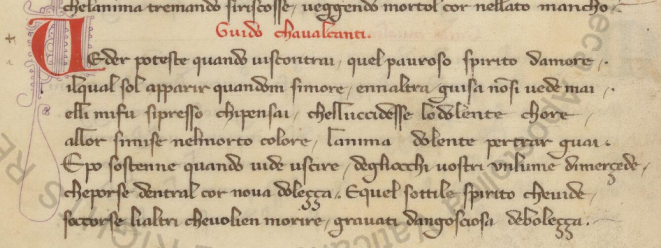 chelanima tremando siriscosse, veggendo mortol cor nellato mancho.
Guido chavalcanti.
Ueder poteste quando uiscontrai, quel pauroso spirito damore.
ilqual sol apparir quandom simore, ennaltra guisa nõsi uede mai
elli mifu sipresso chipensai, chelluccidesse lo dolente chore
allor simise nelmorto colore, lanima dolente pertrar guai.
Epo sostenne quando uide uscire, degliocchi uostri un lume dimerçede,
cheporse dentral cor nova doleçça. Equel sottile spirito cheuide
soccorse lialtri chevolien morire, gravati dangosciosa deboleçça.